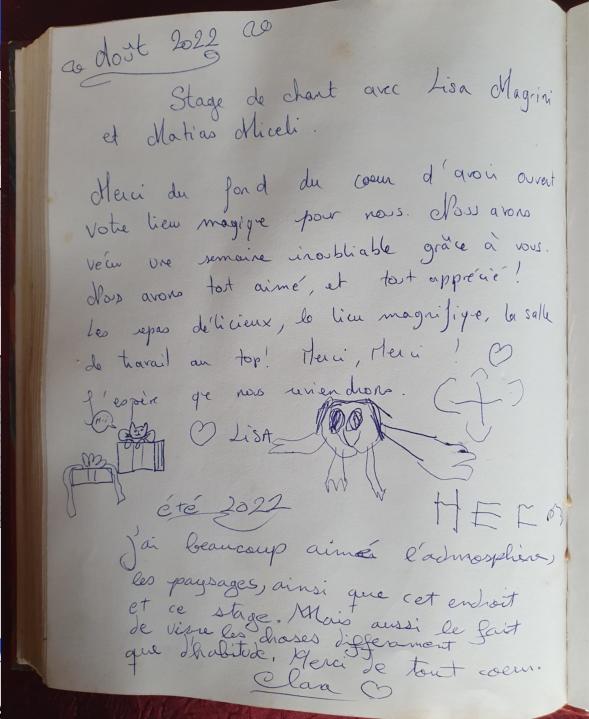 Août 2022
Stage de chant avec Lisa Magrini
et Matias Miceli.
Merci du fond du coeur d'avoir ouvert
votre lieu magique pour nous. Nous avons
vécu une semaine inoubliable grâce à vous.
Nous avons tout aimé, et tout apprécié !
Les repas délicieux, le lieu magnifique, la salle
de travail au top! Merci, Merci !
J'espère que nous reviendrons.
LISA
été 2022
j'ai beaucoup aimé l'admosphère,
les paysages, ainsi que cet endroit
et ce stage. Mais aussi le fait
de vivre les choses differament
que d'habitude. Merci de tout coeur.
Clara